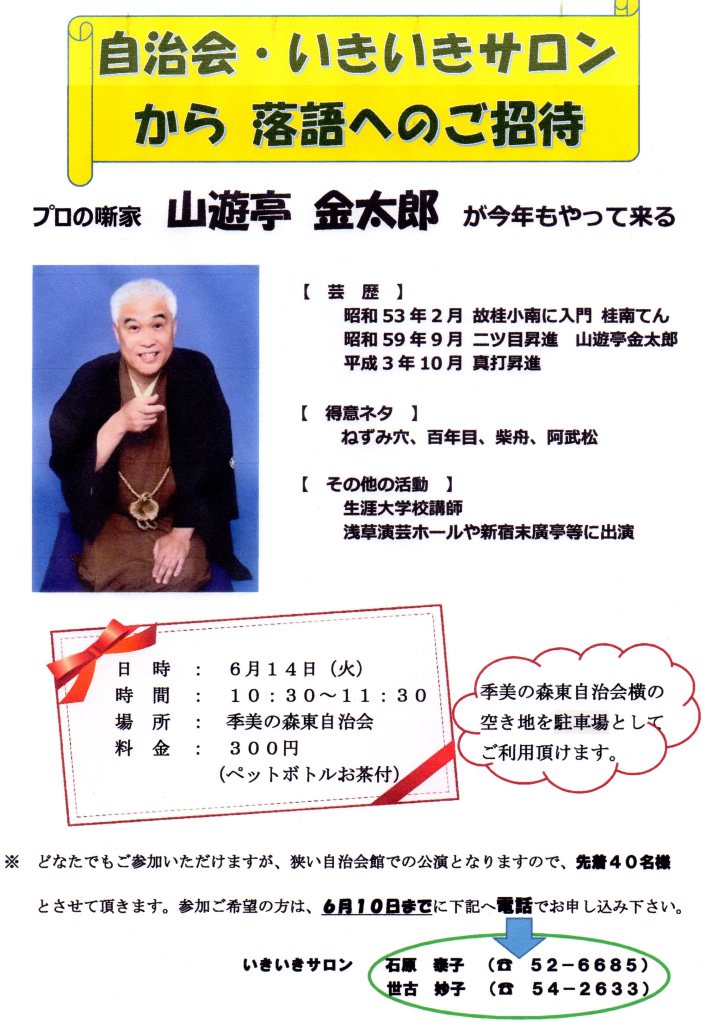 自治会・いきいきサロン
から 落語へのご招待
プロの噺家 山遊亭 金太郎 が今年もやって来る
【 芸 歴 】
昭和53年2月 故桂小南に入門 桂南てん
昭和59年9月 二ツ目昇進 山遊亭金太郎
平成3年10月 真打昇進
【 得意ネタ 】
ねずみ穴、百年目、柴舟、阿武松
【 その他の活動 】
生涯大学校講師
浅草演芸ホールや新宿末廣亭等に出演
日 時 : 6月14日(火)
時 間 : 10:30~11:30
場 所 : 季美の森東自治会
料 金 : 300円
(ペットボトルお茶付)
季美の森東自治会横の
空き地を駐車場として
ご利用頂けます。
※ どなたでもご参加いただけますが、狭い自治会館での公演となりますので、先着40名様
とさせて頂きます。参加ご希望の方は、6月10日までに下記へ電話でお申し込み下さい。
いきいきサロン 石原 泰子 (☎ 52-6685)
世古 妙子 (☎ 54-2633)